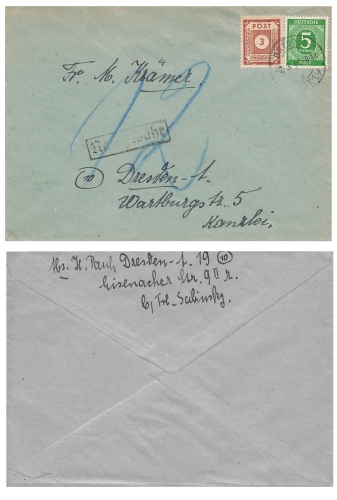 POST
3
DEUTSCHE
5
PFENNIG
POST
Fr. M. Krämer
12
Nachgebühr
(10) Dresden-A.
Wartburgstr. 5
Kanzlei.
Abs. H. Paul, Dresden-A. 19 (10)
Eisenacher Str. 9 II r.
b/ Frl. Salinsky.